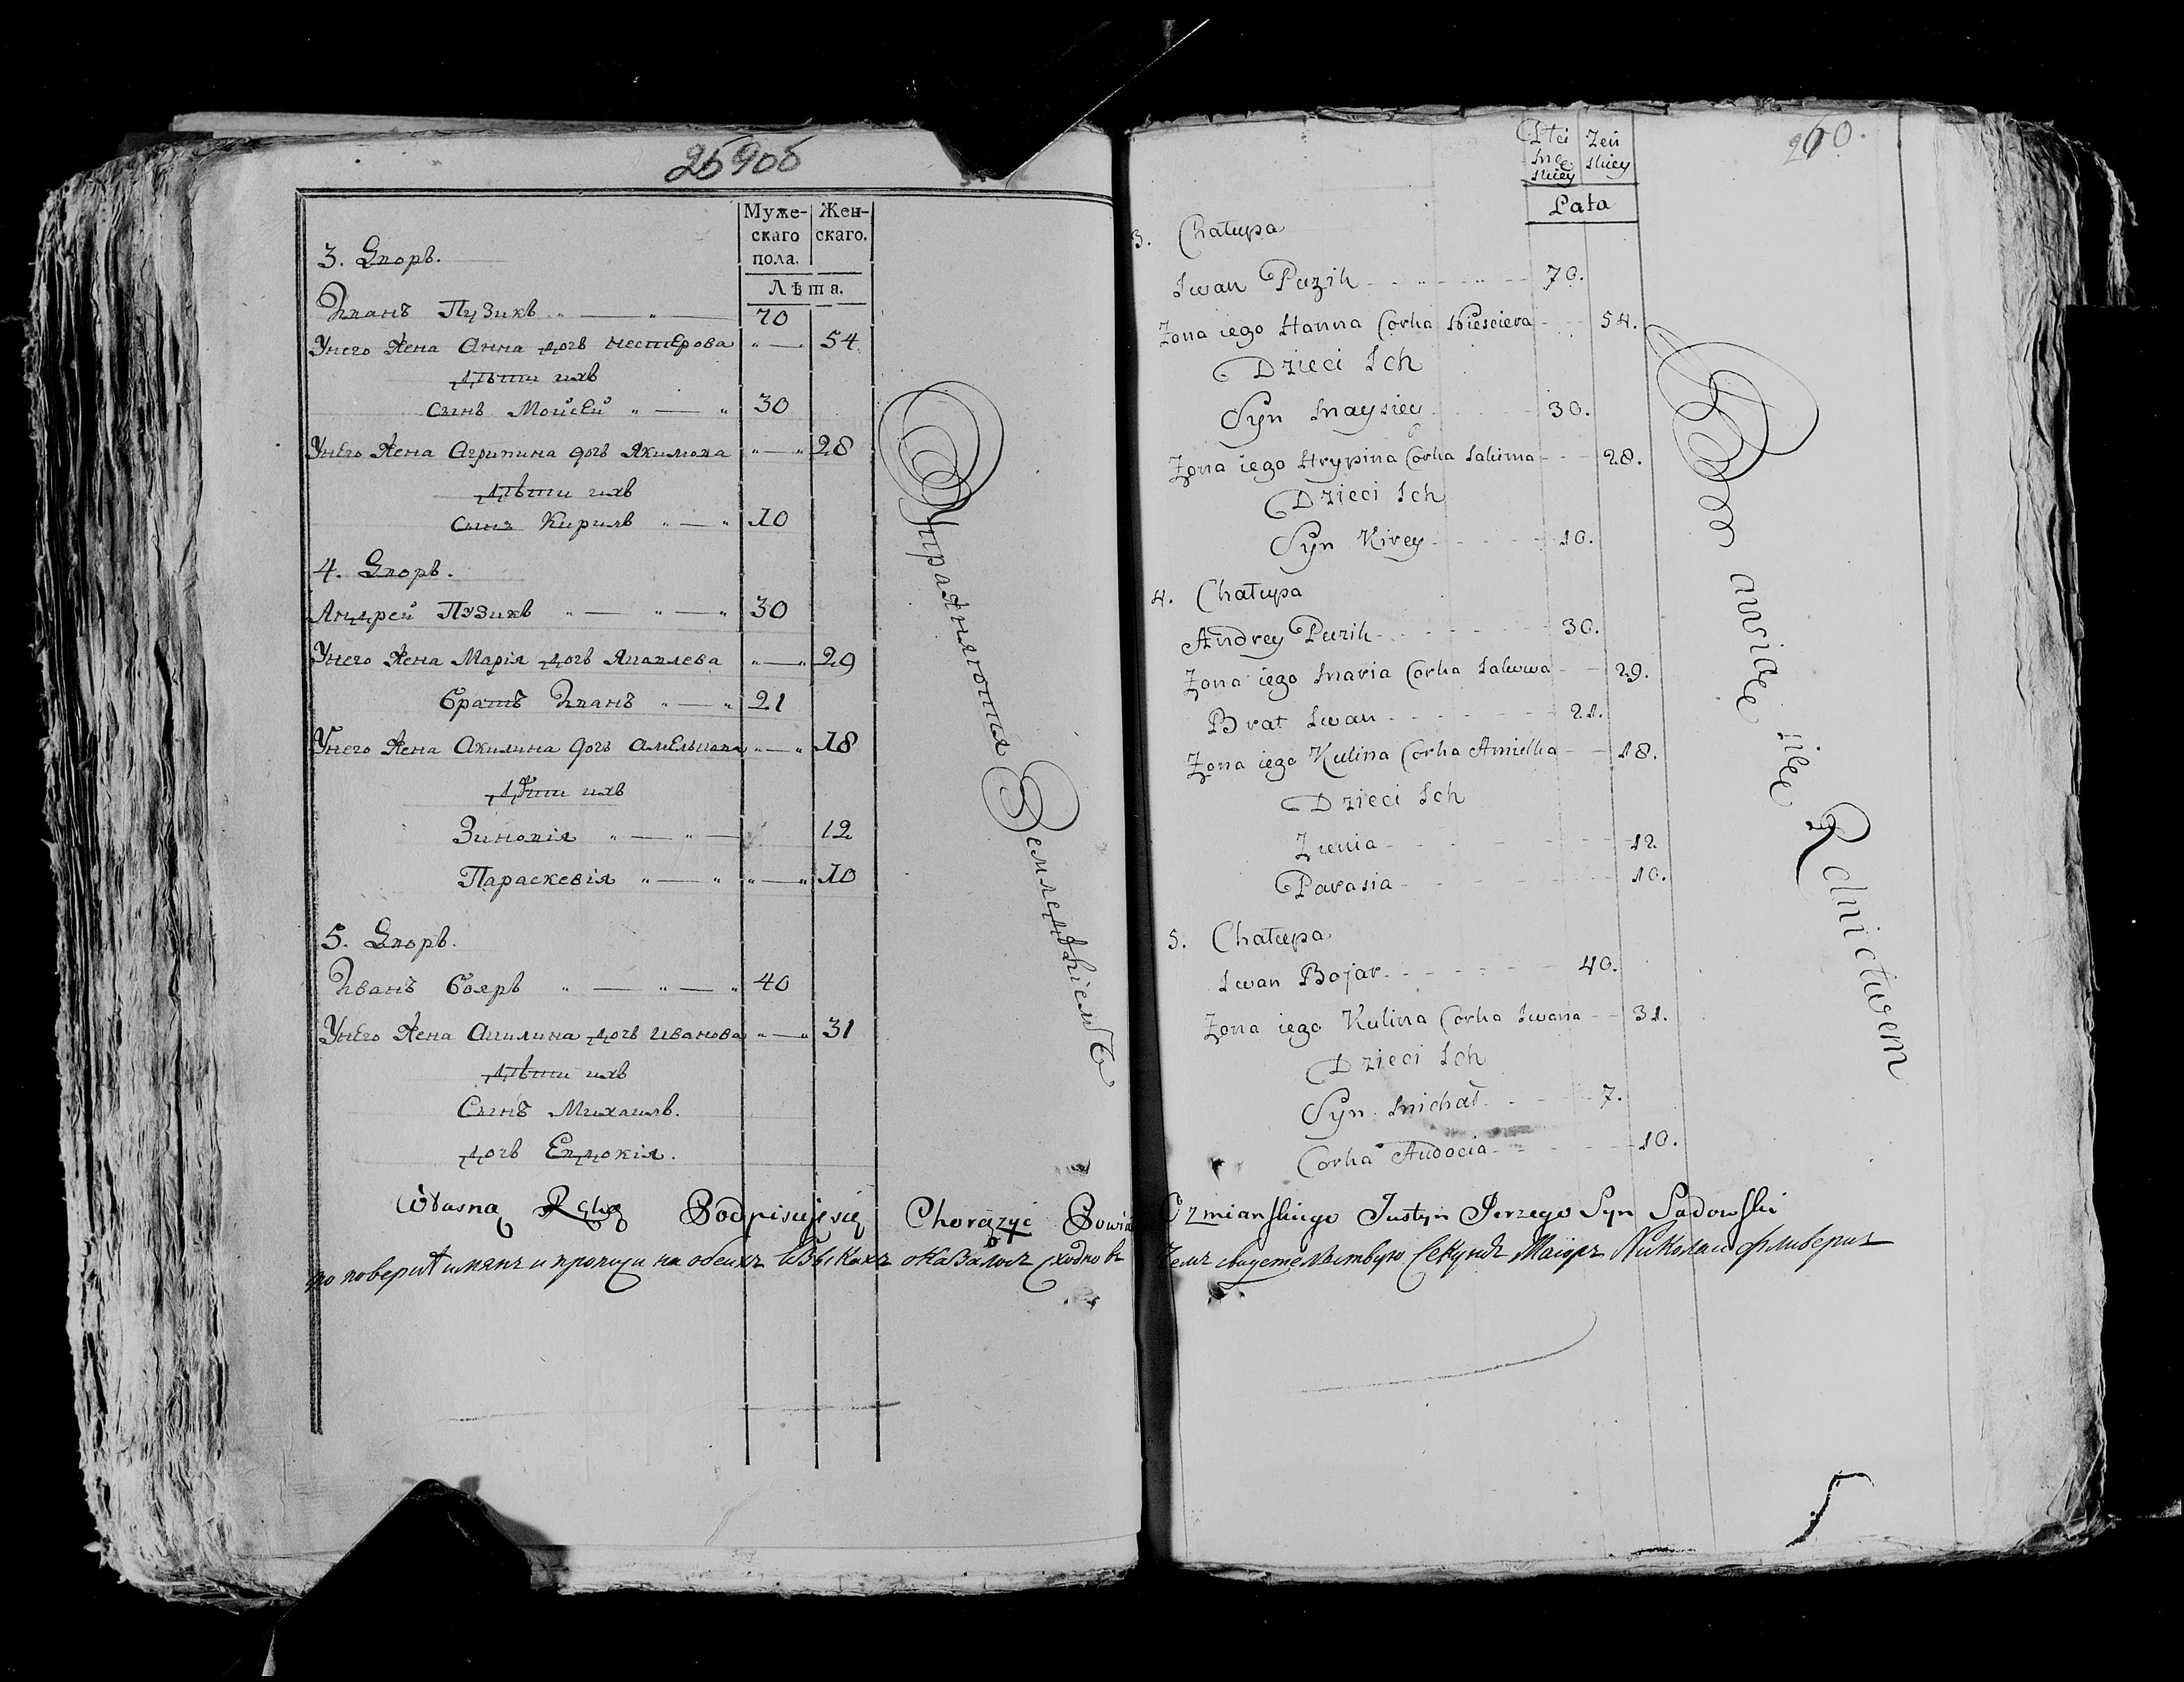 259об
Муже- Жен-
скаго скаго.
пола.
Лѣта.
3. Дворъ.
Иванъ Пузикъ 70
У него жена Анна дочь Нестерова 54
Дѣти ихъ
сынъ Мойсей 30
У него жена Агрипина дочь Якимова 28
Дѣти ихъ
сынъ Кирилъ 10
4. Дворъ.
Андрей Пузикъ 30
У него жена Марія дочь Яковлева 29
братъ Иванъ 21
У него жена Акилина дочь Амельнова 18
Дѣти ихъ
Зиновія 12
Параскевія 10
5. Дворъ.
Иванъ бояръ 40
У него жена Акилина дочь Иванова 31
дѣти ихъ
Сынъ Михаилъ.
дочь Евдокія.
Упражняются Земледѣліемъ
260.
Płci Żeń
Mę skiey
skiey
Lata
3. Chałupa
Iwan Puzik 70.
Żona iego Hanna Corka Niesciera 54.
Dzieci Ich
Syn Maysiey 30.
Żona iego Hrypina Corka Iakima 28.
Dzieci Ich
Syn Kirey 10.
4. Chałupa
Andrey Puzik 30.
Żona iego Maria Corka Iakuwa 29.
Brat Iwan 21.
Żona iego Kulina Corka Amielka 18.
Dzieci Ich
Zienia 12
Parasia 10.
5. Chałupa
Iwan Bojar 40.
Żona iego Kulina Corka Iwana 31.
Dzieci Ich
Syn Michał 7.
Corka Audocia 10.
Bawią się Rolnictwem
Własną Ręką Podpisuję się Chorążyc Powia Ozmianskiego Justyn Jerzego Syn Sadowski
по поверке имянъ и прописи на обеихъ языкахъ оказалось сходно въ чемъ свидетельствую Секундъ Маіоръ Николай